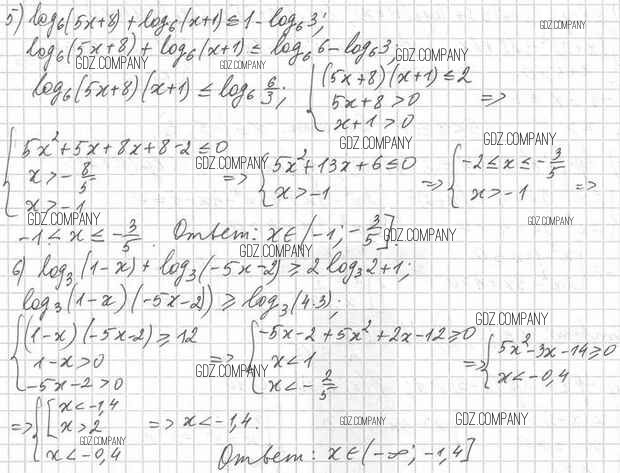 5) log₆(5x+8)+log₆(x+1)≤1-log₆3;
GDZ.COMPANY
log₆(5x+8)+log₆(x+1)≤log₆6-log₆3;
GDZ.COMPANY GDZ.COMPANY GDZ.COMPANY
log₆(5x+8)(x+1)≤log₆ 6/3; { (5x+8)(x+1)≤2
5x+8>0 =>
x+1>0
GDZ.COMPANY GDZ.COMPANY
{ 5x²+5x+8x+8-2≤0
x>-8/5
x>-1
GDZ.COMPANY
=> { 5x²+13x+6≤0
x>-1
=> { -2≤x≤-3/5
x>-1 =>
GDZ.COMPANY GDZ.COMPANY
-1<x≤-3/5. Ответ: x∈(-1; -3/5].
GDZ.COMPANY GDZ.COMPANY
6) log₃(1-x)+log₃(-5x-2)≥2log₃2+1;
log₃(1-x)(-5x-2)≥log₃(4·3);
GDZ.COMPANY
{ (1-x)(-5x-2)≥12
1-x>0
-5x-2>0
=> { -5x-2+5x²+2x-12≥0
x<1
x<-2/5
GDZ.COMPANY
=> { 5x²-3x-14≥0
x<-0,4
=> { [ x<-1,4
x>2
x<-0,4
=> x<-1,4.
GDZ.COMPANY GDZ.COMPANY GDZ.COMPANY
Ответ: x∈(-∞; -1,4]